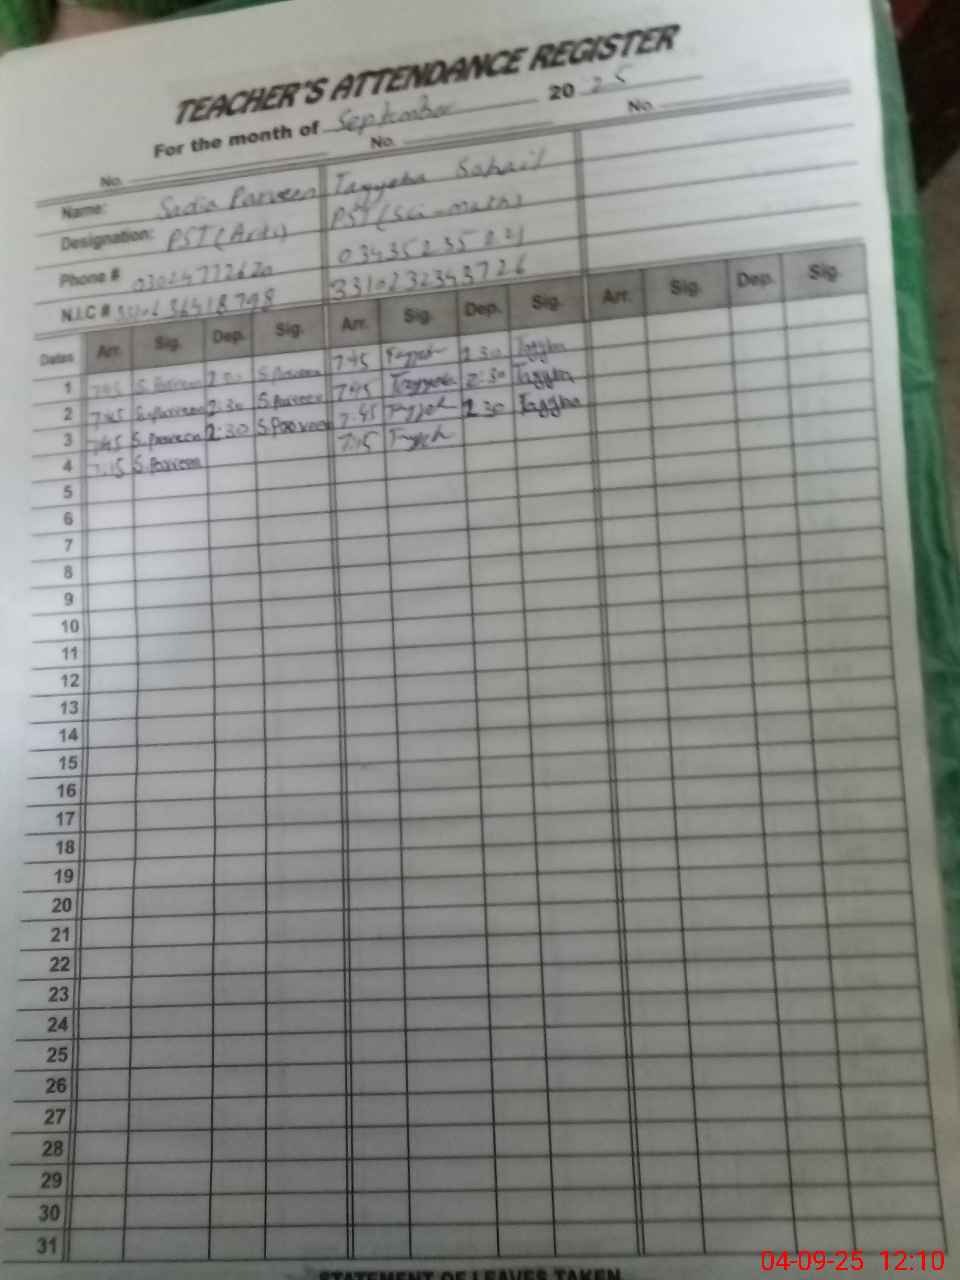 TEACHER'S ATTENDANCE REGISTER
For the month of September 20 25
No. No. No.
Name: Sadia Parveen Tayyeba Sohail
Designation: PST (Arts) PST (Sci-math)
Phone #
N.I.C # 3310232343726
Dates Arr. Sig. Dep. Sig. Arr. Sig. Dep. Sig. Arr. Sig. Dep. Sig.
1 7:45 S.Parveen S.Parveen 7:45 2:30
2 7:45 S.Parveen 2:30 S.Parveen 7:45 Tayyeba 2:30
3 7:45 S.Parveen 2:30 S.Parveen 7:45 2:30
4 7:15 S.Parveen 7:15
5
6
7
8
9
10
11
12
13
14
15
16
17
18
19
20
21
22
23
24
25
26
27
28
29
30
31
STATEMENT OF LEAVES TAKEN
04-09-25 12:10